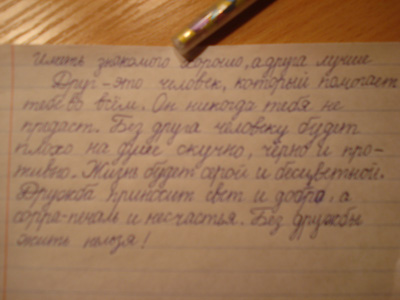 иметь знакомого хорошо, а друга лучше
Друг - это человек, который помогает
тебе во всём. Он никогда тебя не
предаст. Без друга человеку будет
плохо на душе скучно, чёрно и про-
тивно. Жизнь будет серой и бесцветной.
Дружба приносит свет и добро, а
сорра-печаль и несчастья. Без дружбы
жить нельзя!